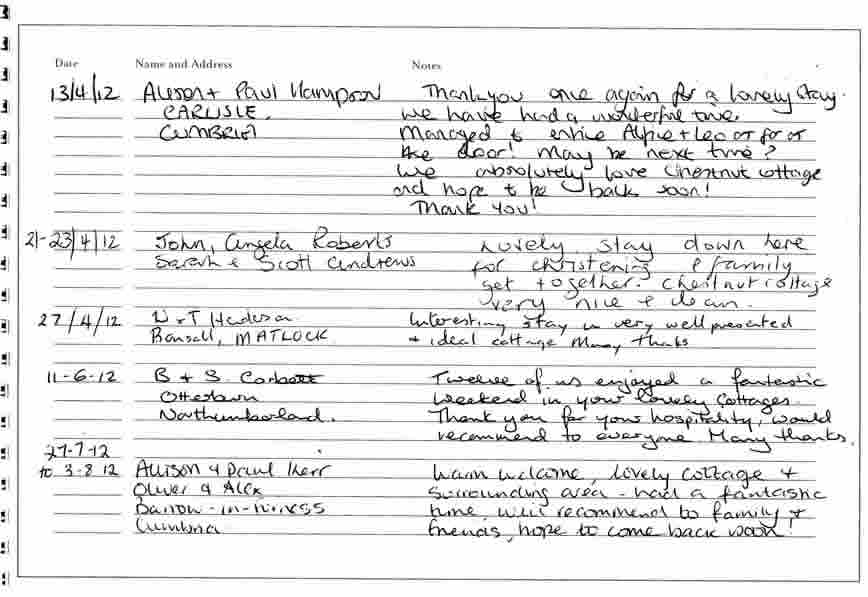 Date Name and Address Notes
13/4/12 Alison + Paul Hampson Thankyou once again for a lovely stay.
CARLISLE. We have had a wonderful time.
CUMBRIA Managed to entice Alfie + Leo or for or
the door! May be next time?
We absolutely love Chestnut cottage
and hope to be back soon!
Thank you!
21-23/4/12 John, Angela Roberts Lovely stay down here
Sarah & Scott Andrews for christening & family
get together. Chestnut cottage
very nice & clean.
27/4/12 Interesting stay in very well presented
Bonsall, MATLOCK + ideal cottage Many thanks
11-6-12 B + S. Corbett Twelve of us enjoyed a fantastic
Otterburn weekend in your lovely cottages.
Northumberland. Thank you for your hospitality, would
recommend to everyone Many thanks.
27-7-12
to 3-8 12 Allison & Paul Kerr Warm welcome, lovely cottage +
Oliver & Alex surrounding area - had a fantastic
Barrow-in-Furness time, will recommend to family +
Cumbria friends, hope to come back soon!